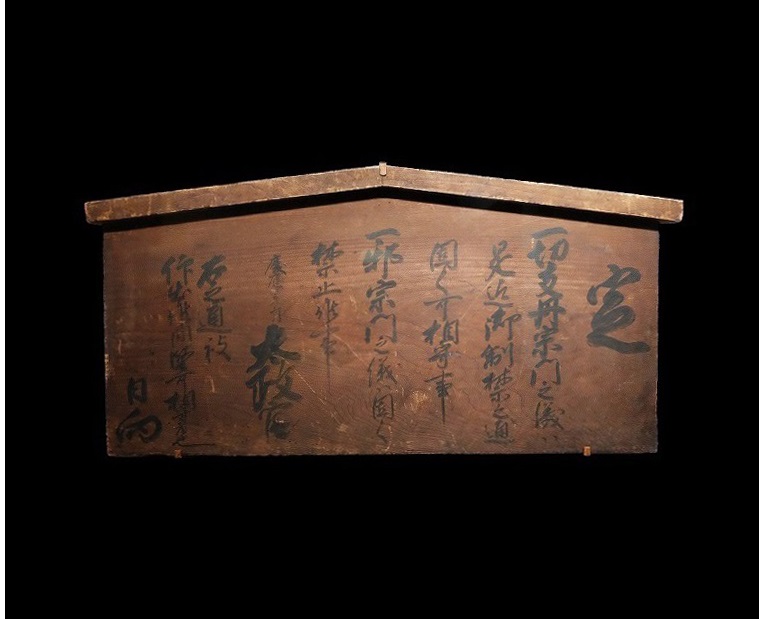 定
一切支丹宗門之儀ハ
是迠御制禁之通
固く可相守事
一邪宗門之儀ハ固く
禁止候事
慶応四年
太政官
右之通被
仰出候間堅可相守也
日向